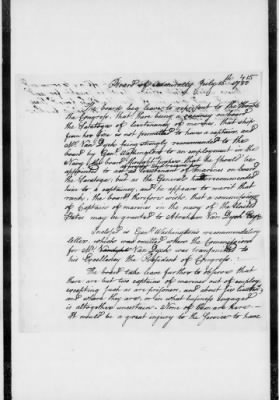 415
Board of Admiralty July 15th 1780
The board beg leave to represent to the Honble
the Congress, that there being a vacancy on board
the Saratoga of lieutenancy of marines, that ship
from her size is not permitted to have a captain, and
Mr. Van Dyck being strongly recommended to the
board by Genl. Washington to an employment in the
Navy the board thought proper that he should be
appointed to act as Lieutenant of marines on board
the Saratoga, but as the General recommended
him to a captaincy, and he appears to merit that
rank, the board therefore wish that a commission
of Captain of marines in the navy of the United
States may be granted to Abraham Van Dyck Esqr.
Inclosed is Genl. Washingtons recommendatory
letter which was omitted when the Commission
for Mr. Van Dyck was transmitted to
his Excellency the President of Congress.
The board take leave farther to observe that
there are but two captains of marines out of employ,
excepting such as are prisoners, and about
and where they are, or on what business engaged
is altogether uncertain. None of them are here
It would be a great injury to the Service to have